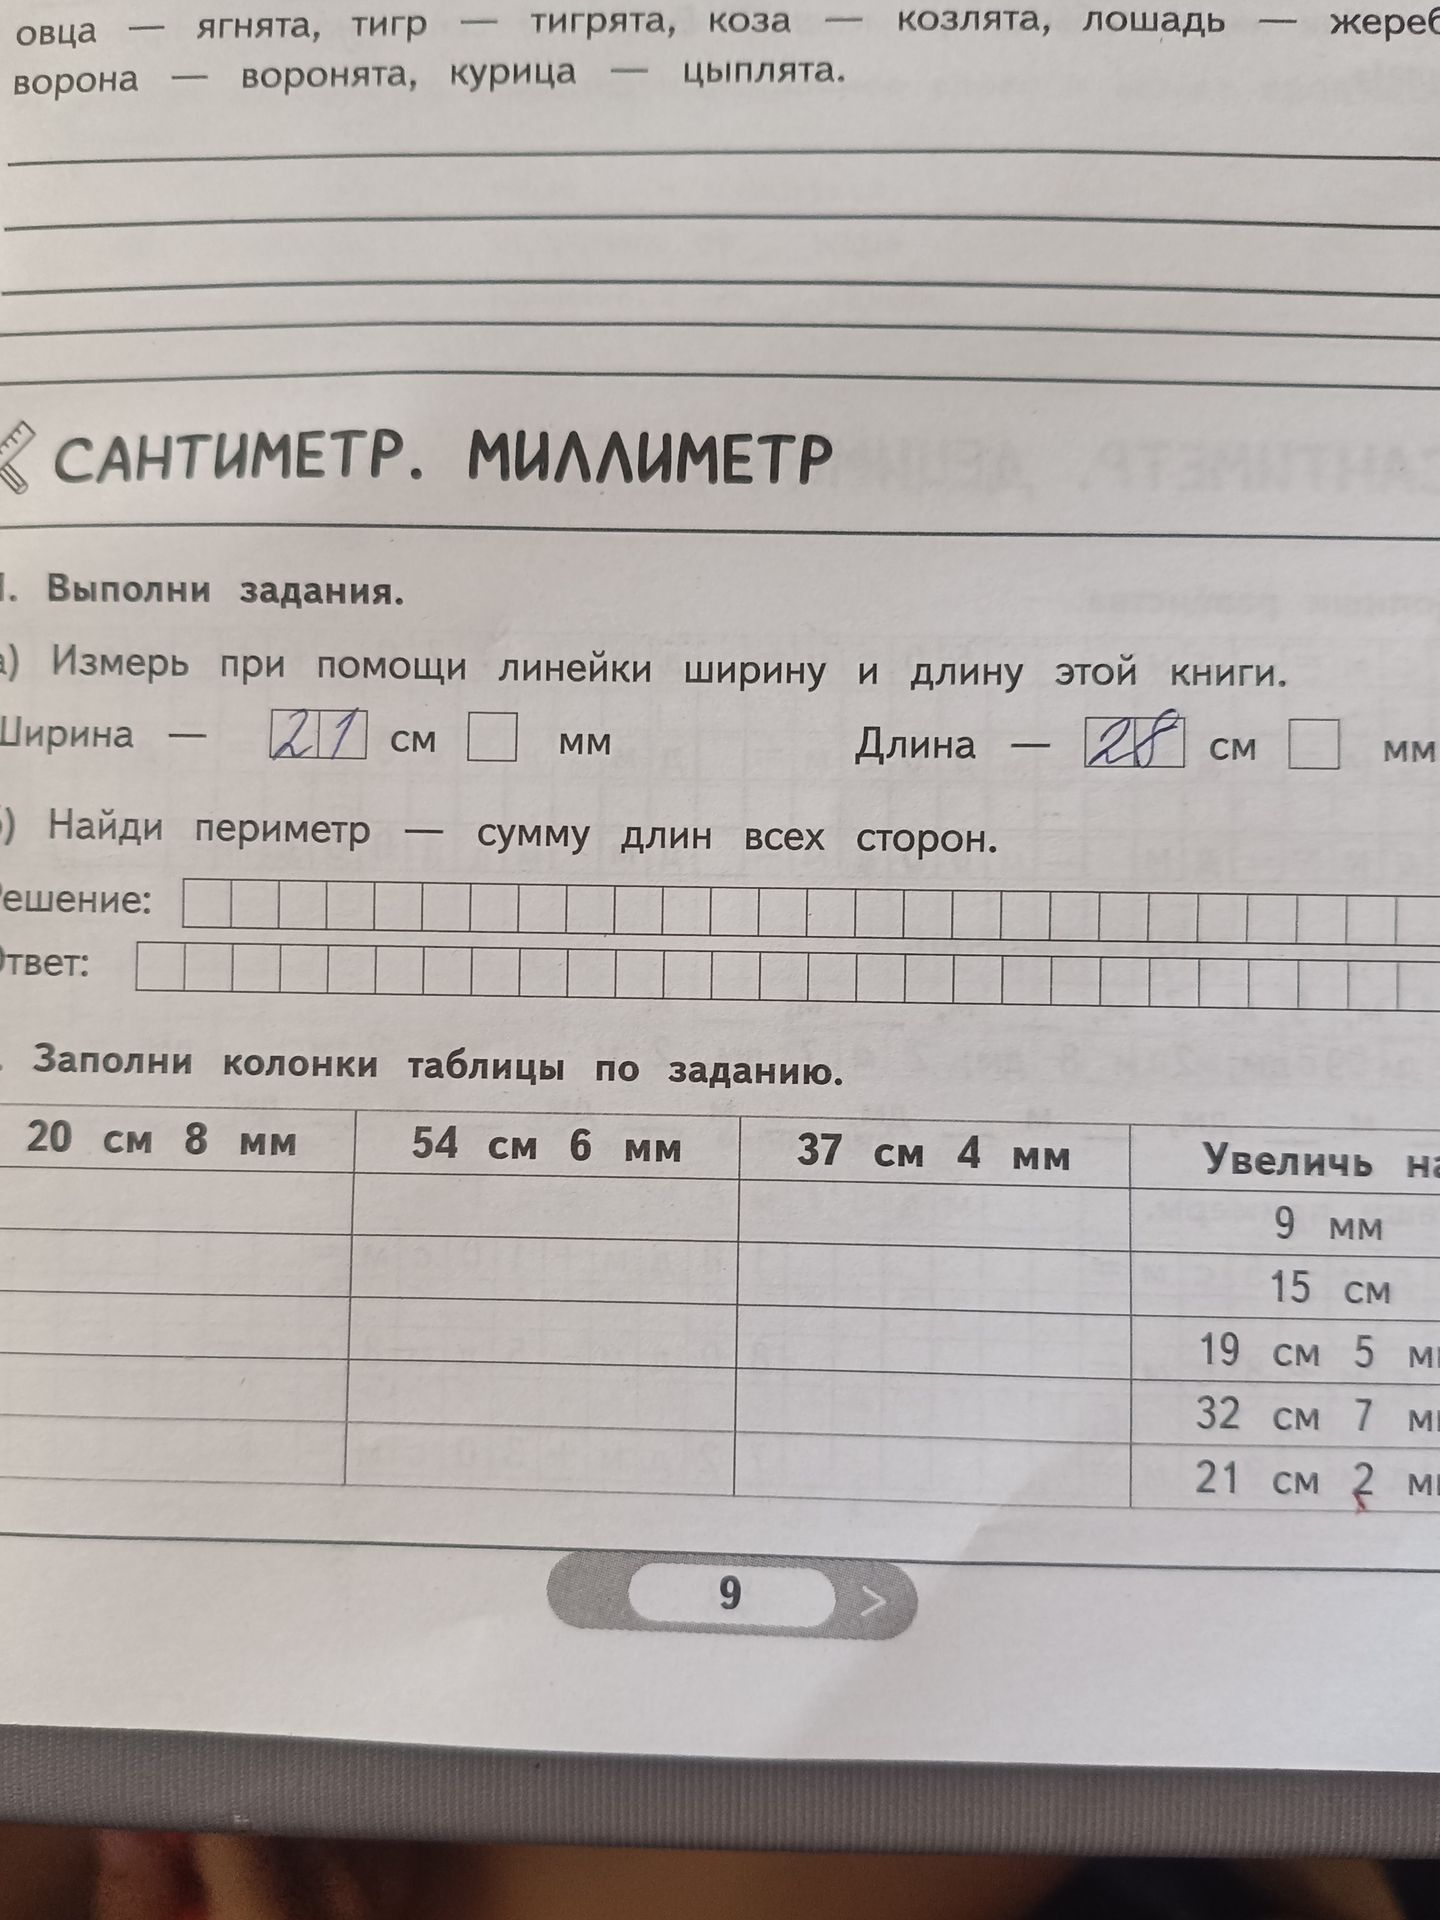 овца — ягнята, тигр — тигрята, коза — козлята, лошадь — жереб
ворона — воронята, курица — цыплята.
САНТИМЕТР. МИЛЛИМЕТР
1. Выполни задания.
а) Измерь при помощи линейки ширину и длину этой книги.
Ширина — 21 см мм Длина — 28 см мм
б) Найди периметр — сумму длин всех сторон.
Решение:
Ответ:
. Заполни колонки таблицы по заданию.
20 см 8 мм 54 см 6 мм 37 см 4 мм Увеличь на
9 мм
15 см
19 см 5 мм
32 см 7 мм
21 см 2 мм
9 >